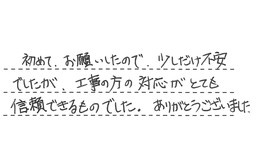 初めて、お願いしたので、少しだけ不安
でしたが、工事の方の対応がとても
信頼できるものでした。ありがとうございました